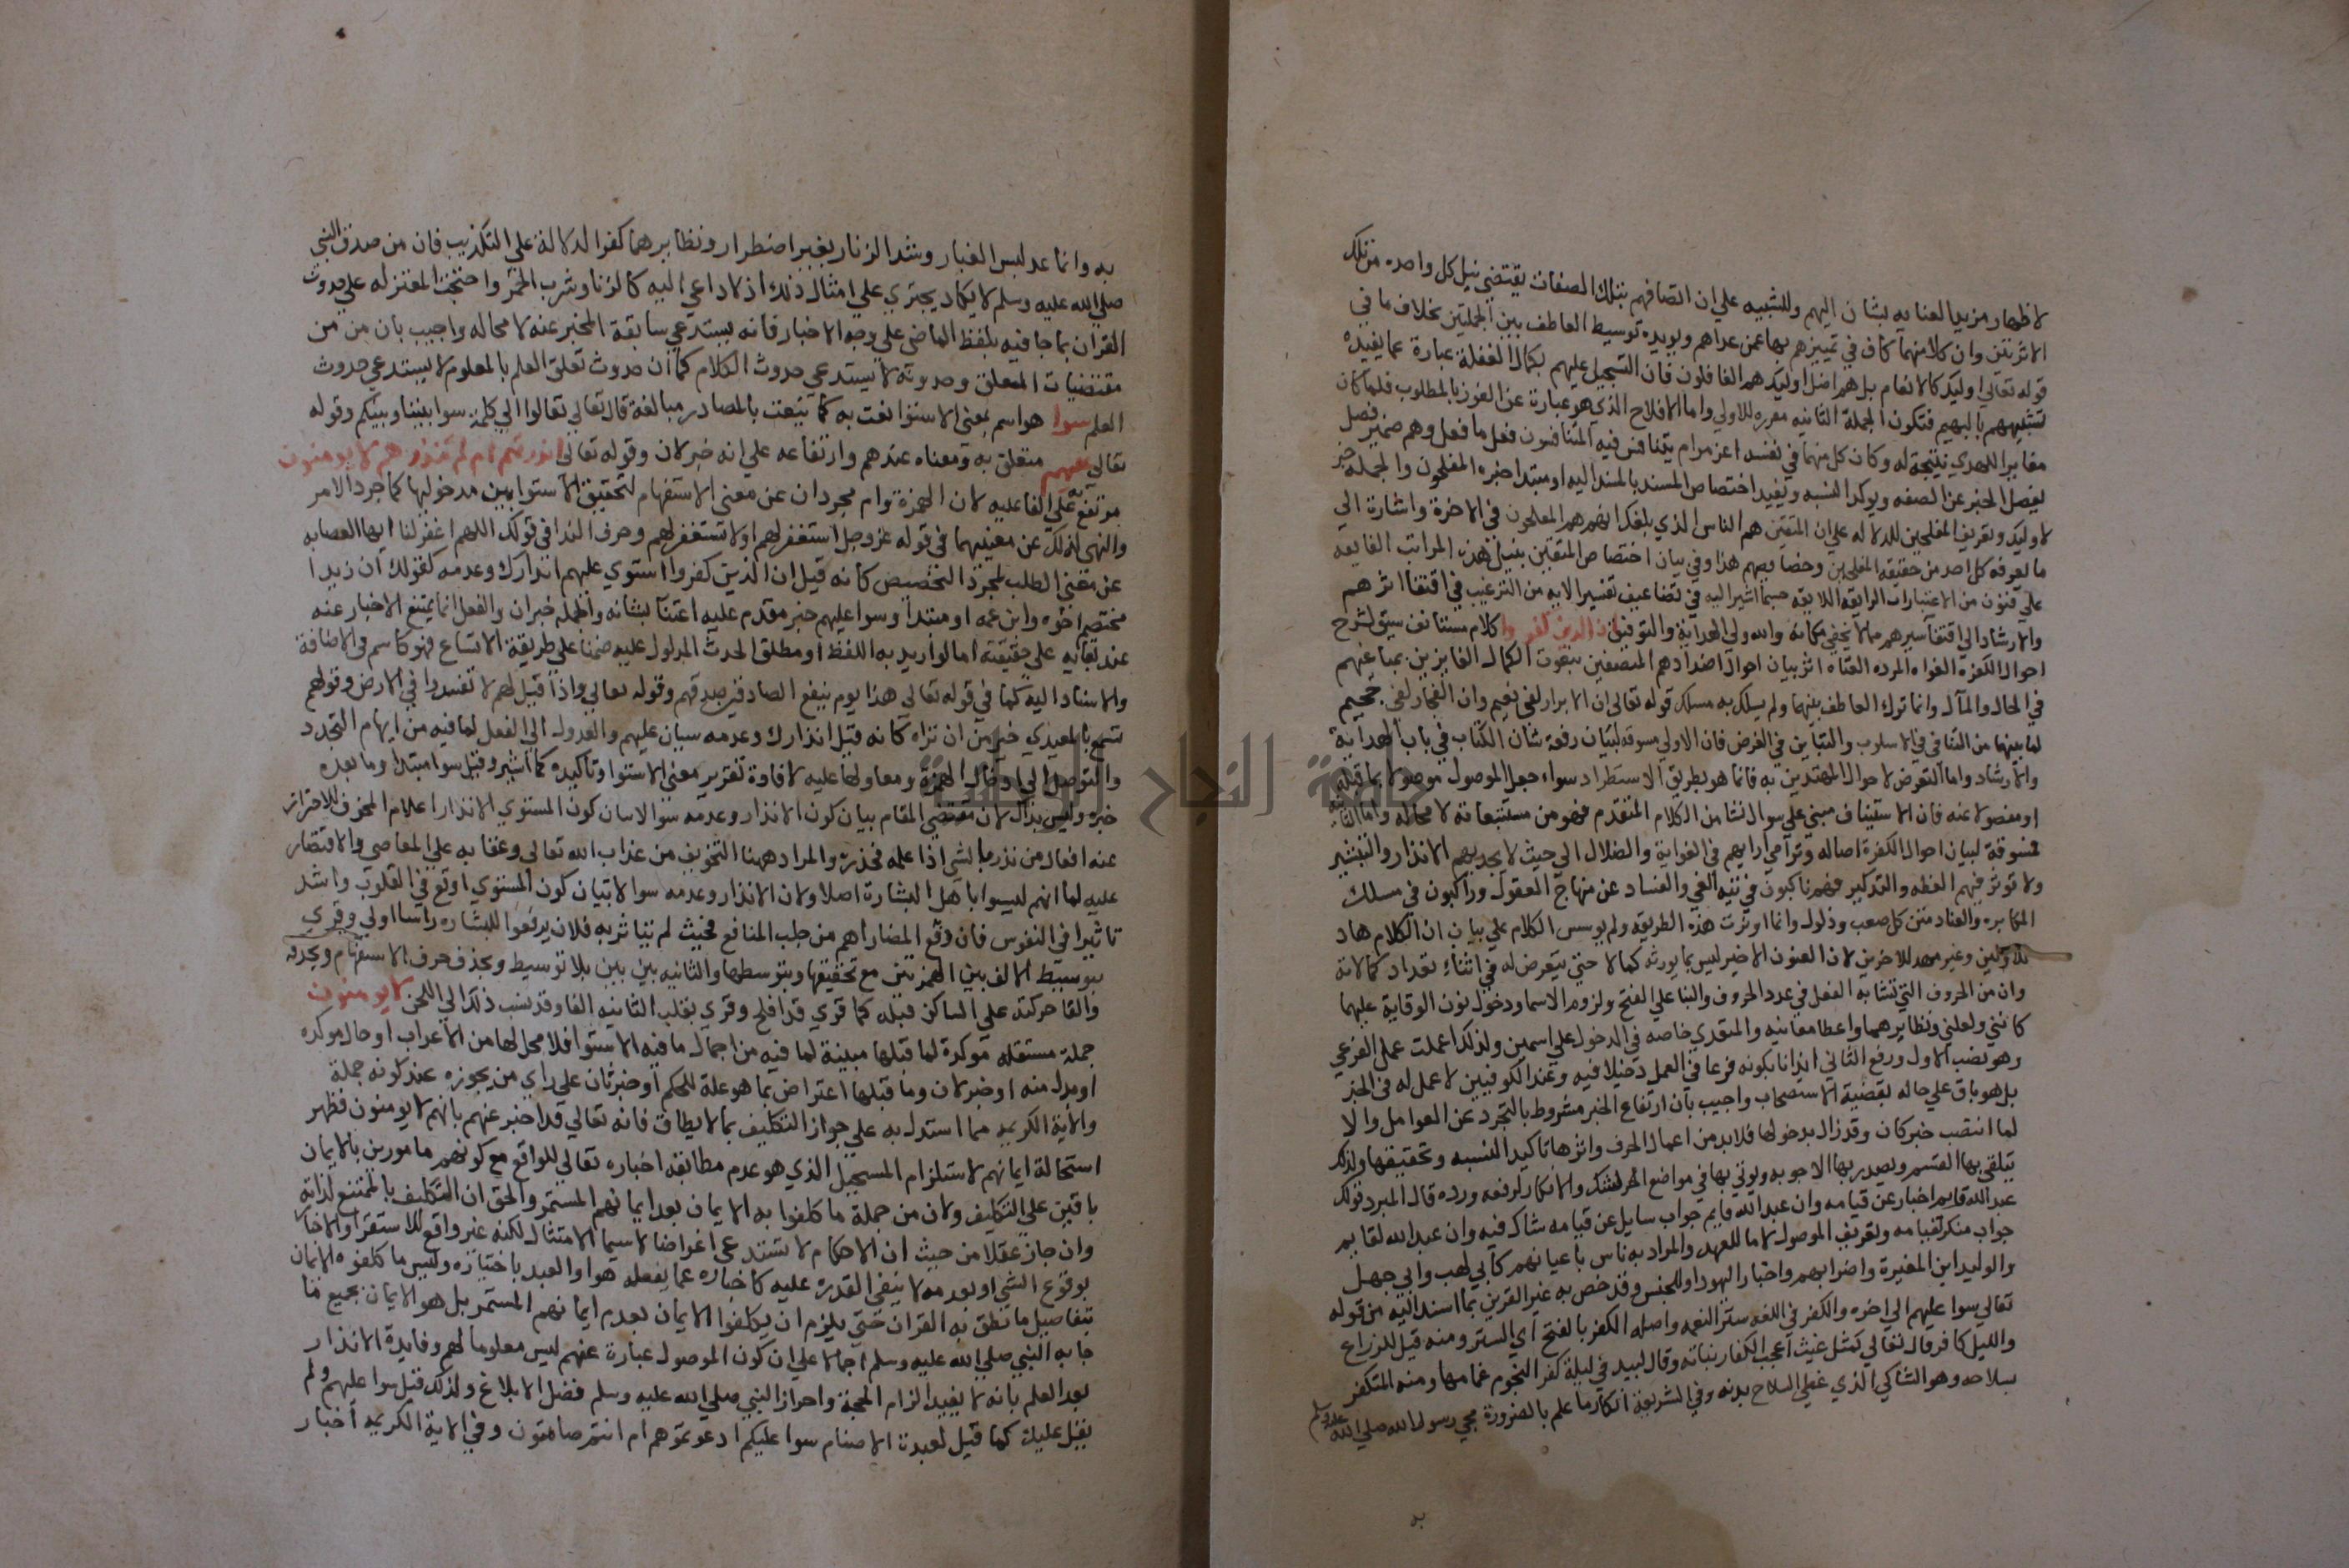 لاظهار مزيد العنايه بشان اليهم وللتنبيه علي ان اتصافهم بتلك الصفات يقتضي نيل كل واحده من تلك
الاثرتين وان كلا منهما كاف في تميزهم بها عمن عداهم ويويده توسيط العاطف بين الجملتين بخلاف ما في
قوله تعالي اوليك كالانعام بل هم اضل اوليك هم الغافلون فان التسجيل عليهم بكمال الغفلة عبارة عما يفيده
تشبيههم بالبهيم فتكون الجملة الثانيه مقرره للاولي واما الافلاح الذي هو عبارة عن الفوز بالمطلوب فلما كان
مغايرا للهدي نتيجة له وكان كل منهما في نفسه اعز مرام يتنافس فيه المتنافسون فعل ما فعل وهم ضمير فصل
يفصل الخبر عن الصفه ويوكد النسبه ويفيد اختصاص المسند بالمسند اليه او مبتدا خبره المفلحون والجمله خبر
لاوليك وتعريف المفلحين للدلاله علي ان المتقين هم الناس الذي بلغك انهم هم المفلحون في الاخرة واشارة الي
ما يعرفه كل احد من حقيقه المفلحين وخصايصهم هذا وفي بيان اختصاص المتقين بنيل هذه المراتب الفايقه
علي فنون من الاعتبارات الرايقه اللايقه حسبما اشير اليه في تضاعيف تفسير الايه من الترغيب في اقتفا اثرهم
والارشاد الي اقتفا سيرهم ما لا يخفي مكانه والله ولي الهداية والتوفيق ان الذين كفروا كلام مستانف سيق لشرح
احوال الكفرة الغواه المرده العتاه اثر بيان احوال اضدادهم المتصفين بنعوت الكمال الفايزين بمباغيهم
في الحال والمآل وانما ترك العاطف بينهما ولم يسلك به مسلك قوله تعالي ان الابرار لفي نعيم وان الفجار لفي جحيم
لما بينهما من التنافي في الاسلوب والتباين في الغرض فان الاولي مسوقه لبيان رفعة شان الكتاب في باب الهداية
والارشاد واما التعرض لاحوال المهتدين به فانما هو بطريق الاستطراد سواء جعل الموصول موصولا بما قبله
او مفصولا عنه فان الاستيناف مبني علي سوال نشا من الكلام المتقدم فهو من مستتبعاته لا محاله واما الثانيه
فمسوقة لبيان احوال الكفرة اصاله وترامي امرهم في الغواية والضلال الي حيث لا يجديهم الانذار والتبشير
ولا توثر فيهم العظه والتذكير فهم ناكبون في تيه الغي والفساد عن منهاج العقول وراكبون في مسلك
المكابره والعناد متن كل صعب وذلول وانما اوثرت هذه الطريقه ولم يوسس الكلام علي بيان ان الكلام هاد
للاولين وغير مهد للاخرين لان العنوان الاخير ليس مما يورثه كمالا حتي يتعرض له في اثناء تعداد كمالاته
وان من الحروف التي تشابه الفعل في عدد الحروف والبنا علي الفتح ولزوم الاسما ودخول نون الوقاية عليها
كانني ولعلني ونظايرهما واعطا معانيه والمتعدي خاصه في الدخول علي اسمين ولذلك اعملت عمله الفرعي
وهو نصب الاول ورفع الثاني ايذانا بكونه فرعا في العمل دخيلا فيه وعند الكوفيين لا عمل له في الخبر
بل هو باق علي حاله بقضية الاستصحاب واجيب بان ارتفاع الخبر مشروط بالتجرد عن العوامل والا
لما انتصب خبر كان وقد زال بدخولها فلا بد من اعمال الحرف واثرها تاكيد النسبه وتحقيقها ولذلك
يتلقي بها القسم ويصدر بها الاجوبه ويوتي بها في مواضع الشك والانكار لدفعه ورده قال المبرد قولك
عبد الله قايم اخبار عن قيامه وان عبد الله قايم جواب سايل عن قيامه شاك فيه وان عبد الله لقايم
جواب منكر لقيامه وتعريف الموصول لاما للعهد والمراد به ناس باعيانهم كابي لهب وابي جهل
والوليد ابن المغيرة واضرابهم واحبار اليهود او للجنس وقد خص به غير المقرين بما اسند اليه من قوله
تعالي سوا عليهم الي اخره والكفر في اللغه ستر النعمه واصله الكفر بالفتح اي الستر ومنه قيل للزراع
والليل كافر قال تعالي كمثل غيث اعجب الكفار نباته وقال لبيد في ليلة كفر النجوم غمامها ومنه المتكفر
بسلاحه وهو الشاكي الذي غطي السلاح بدنه وفي الشريعة انكار ما علم بالضرورة مجي رسول الله صلي الله عليه وسلم
به
به وانما عد لبس الغيار وشد الزنار بغير اضطرار ونظايرهما كفرا لدلالة علي التكذيب فان من صدق النبي
صلي الله عليه وسلم لا يكاد يجتري علي امثال ذلك اذ لا داعي اليه كالزنا وشرب الخمر واحتجت المعتزله علي حدوث
القران بما جا فيه بلفظ الماضي علي وجه الاخبار فانه يستدعي سابقة المخبر عنه لا محاله واجيب بان من من
مقتضيات المتعلق وحدوثه لا يستدعي حدوث الكلام كما ان حدوث تعلق العلم بالمعلوم لا يستدعي حدوث
العلم سوا هو اسم بمعني الاستوا نعت به كما ينعت بالمصادر مبالغة قال تعالي تعالوا الي كلمة سوا بيننا وبينكم وقوله
تعالي عليهم متعلق به ومعناه عندهم وارتفاعه علي انه خبر لان وقوله تعالي انذرتهم ام لم تنذرهم لا يومنون
مرتفع به علي الفاعليه لان الهمزة وام مجردان عن معني الاستفهام لتحقيق الاستوا بين مدخوليها كما جرد الامر
والنهي لذلك عن معنييهما في قوله عز وجل استغفر لهم او لا تستغفر لهم وحرف الندا في قولك اللهم اغفر لنا ايها العصابه
عن معني الطلب لمجرد التخصيص كانه قيل ان الذين كفروا استوي عليهم انذارك وعدمه كقولك ان زيدا
مختصم اخوه وابن عمه او مبتدا وسوا عليهم خبر مقدم عليه اعتنآ بشانه والجمله خبر ان والفعل انما يمتنع الاخبار عنه
عند بقايه علي حقيقته اما لو اريد به اللفظ او مطلق الحدث المدلول عليه ضمنا علي طريقة الاتساع فهو كاسم في الاضافة
والاسناد اليه كما في قوله تعالي هذا يوم ينفع الصادقين صدقهم وقوله تعالي واذا قيل لهم لا تفسدوا في الارض وقولهم
تسمع بالمعيدي خير من ان تراه كانه قيل انذارك وعدمه سيان عليهم والعدول الي الفعل لما فيه من ايهام التجدد
والتوصل الي ادخال الهمزة ومعادلها عليه لافادة تقرير معني الاستوا وتاكيده كما اشير وقيل سوا مبتدا وما بعده
خبره وليس بذاك لان مقتضي المقام بيان كون الانذار وعدمه سوا لا بيان كون المستوي الانذار اعلام المخوف للاحتراز
عنه افعال من نذر بالشي اذا علمه فحذره والمراد ههنا التخويف من عذاب الله تعالي وعقابه علي المعاصي والاقتصار
عليه لما انهم ليسوا باهل البشارة اصلا ولان الانذار وعدمه سوا لا بيان كون المستوي اوقع في القلوب واشد
تاثيرا في النفوس فان دفع المضار اهم من جلب المنافع فحيث لم يتاثر به فلان لا يرفعوا للبشاره راسا اولي وقري
بتوسيط الالف بين الهمزتين مع تحقيقها وبتوسطها والثانيه بين بين بلا توسيط وبحذف حرف الاستفهام وبحذفه
والقا حركته علي الساكن قبله كما قري قد افلح وقري بقلب الثانيه الفا وقد نسب ذلك الي اللحن لا يومنون
جملة مستقله موكدة لما قبلها مبينة لما فيه من اجمال ما فيه الاستوا فلا محل لها من الاعراب او حال موكده
او بدل منه او خبر لان وما قبلها اعتراض بما هو علة للحكم او خبر ثان علي راي من يجوزه عند كونه جملة
والاية الكريمه مما استدل به علي جواز التكليف بما لا يطاق فانه تعالي قد اخبر عنهم بانهم لا يومنون فظهر
استحالة ايمانهم لاستلزام المستحيل الذي هو عدم مطابقة اخباره تعالي للواقع مع كونهم مامورين بالايمان
باقين علي التكليف ولان من جملة ما كلفوا به الايمان بعدم ايمانهم المستمر والحق ان التكليف بالممتنع لذاته
وان جاز عقلا من حيث ان الاحكام لا تستدعي اغراضا لا سيما الامتثال لكنه غير واقع للاستقرا والاخبار
بوقوع الشي او بعدمه لا ينفي القدرة عليه كاخباره عما يفعله هو او العبد باختياره وليس ما كلفوه الايمان
بتفاصيل ما نطق به القران حتي يلزم ان يكلفوا الايمان بعدم ايمانهم المستمر بل هو الايمان بجميع ما
جا به النبي صلي الله عليه وسلم اجمالا علي ان كون الموصول عبارة عنهم ليس معلوما لهم وفايدة الانذار
بعد العلم بانه لا يفيد الزام الحجة واحراز النبي صلي الله عليه وسلم فضل الابلاغ ولذلك قيل سوا عليهم ولم
يقل عليك كما قيل لعبدة الاصنام سوا عليكم ادعوتموهم ام انتم صامتون وفي الاية الكريمه اخبار
جامعة النجاح الوطنية